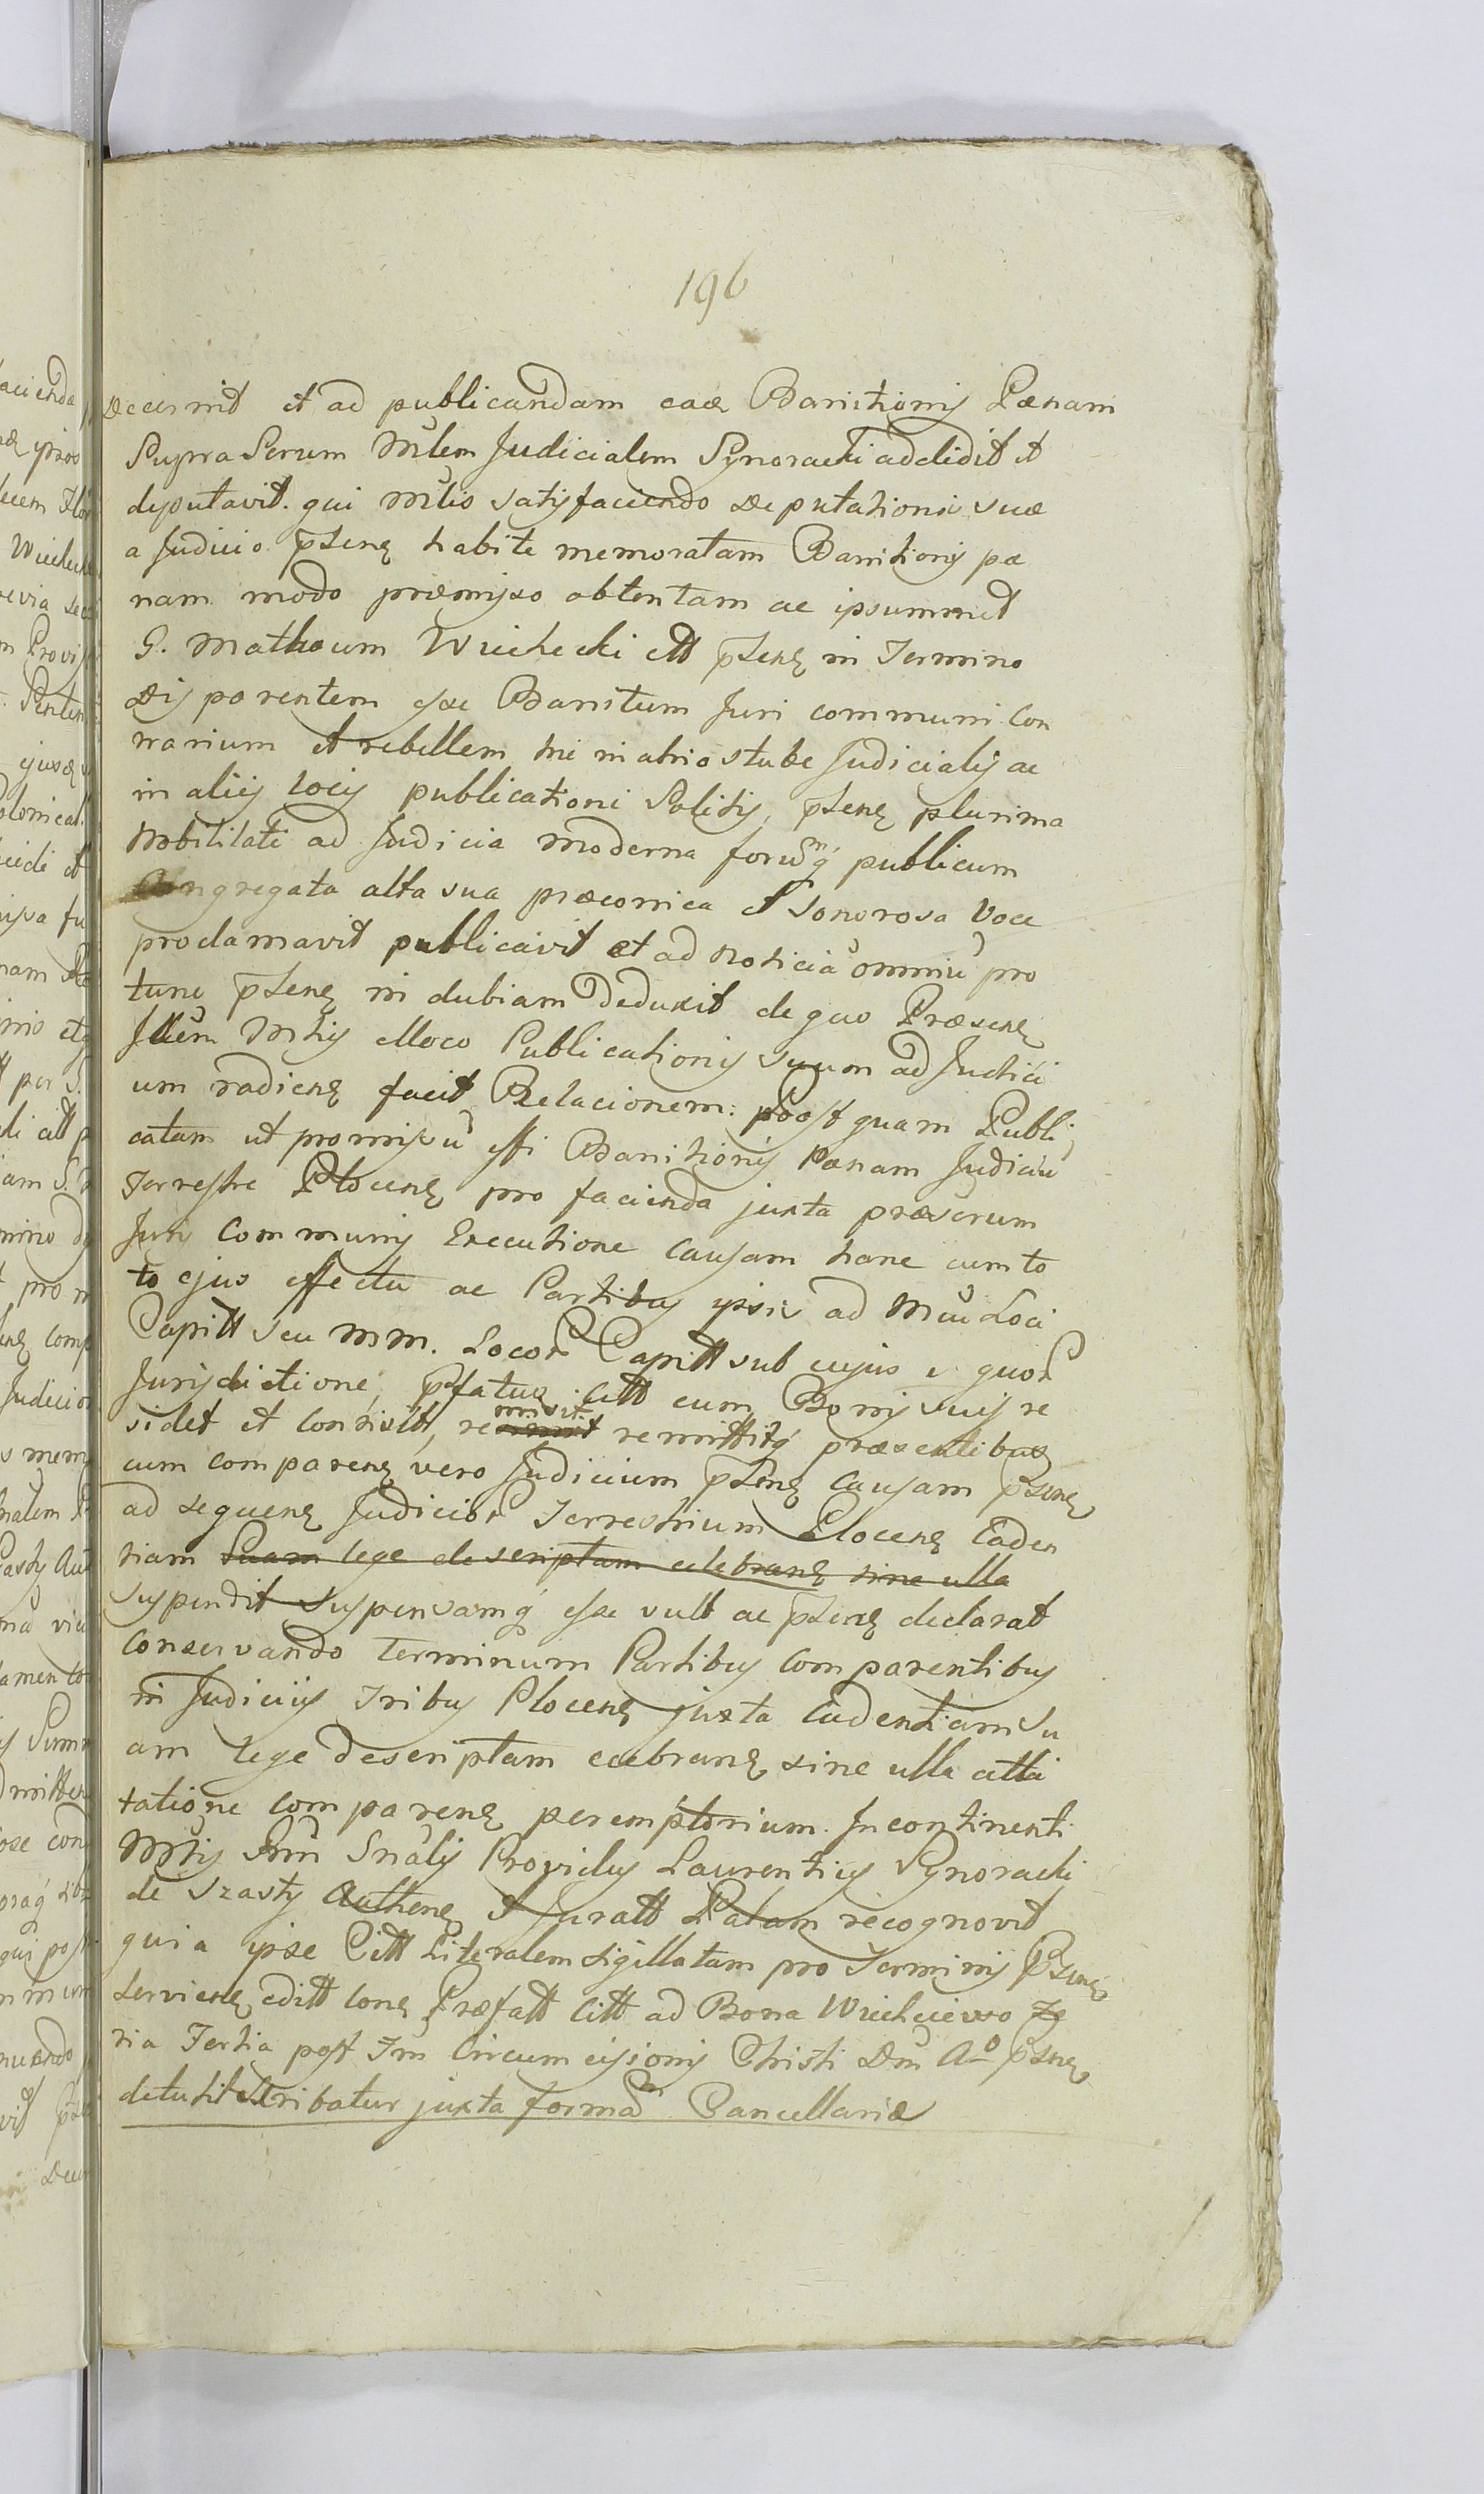 196
Decernit et ad publicandam eaq Banitionis Pænam
Supra Scrum Mtlem Judicialem Synoracki addidit et
deputavit. qui Mtlis satisfaciendo Deputationi suæ
a Judicio pszenq habite memoratam Banitionis pæ
nam modo præmisso obtentam ac ipsummet
G. Mathæum Wuicheski citt pszenq in Termino
Dis parentem esse Banitum Juri communi Con
trarium et rebellem hic in atrio stubæ Judicialis ac
in alijs locis publicationi Solitis, pszenq plurima
Nobilitate ad Judicia moderna forumq publicum
Congregata alta sua præconica et sonorosa Voce
proclamavit publicavit et ad noticiã omniũ pro
tunc pszenq in dubiam deduxit de quo Præsenq
Idem Mtlis elloco Publicationis suum ad Judici
um radienq facit Relacionem: Postquam Publi
catam ut promissũ est Banitionis Pænam Judiciũ
Terrestre Plocenq pro facienda juxta præscrum
Juris Communis Executione Causam hanc cum to
to ejus effectu ac Partibus ipsis ad Mũ Loci
Capitt seu MM. Locor Capitt sub cujus v. quor
Jurisdictione, pfatus Citt cum Bonis suis re
sidet et Consistit, remisit remittitq præsentibus
cum comparenq vero Judicium pszenq Causam pszenq
ad sequenq Judicior Terrestrium Plocenq Caden
tiam suam lege descriptam celebranq sine ulla
suspendit suspensamq esse vult ac pszenq declarat
Conservando terminum Partibus Comparentibus
in Judiciis Tribus Plocenq juxta Cadentiam su
am lege descriptam celebranq sine ulla citta
tatione comparenq peremptorium. In continenti
Mtlis Snalis Providus Laurentius Synoracki
de Szasty Authenq et Juratt Palam recognovit
quia ipse Citt Literalem sigillatam pro Terminis Pszenq
servienq editt Conq Præfatt Citt ad Bona Wuichciewo Fe
ria Tertia post Fm Circumcisionis Christi Dm Aº pszenq
detulit Scribatur juxta formã Cancellariæ